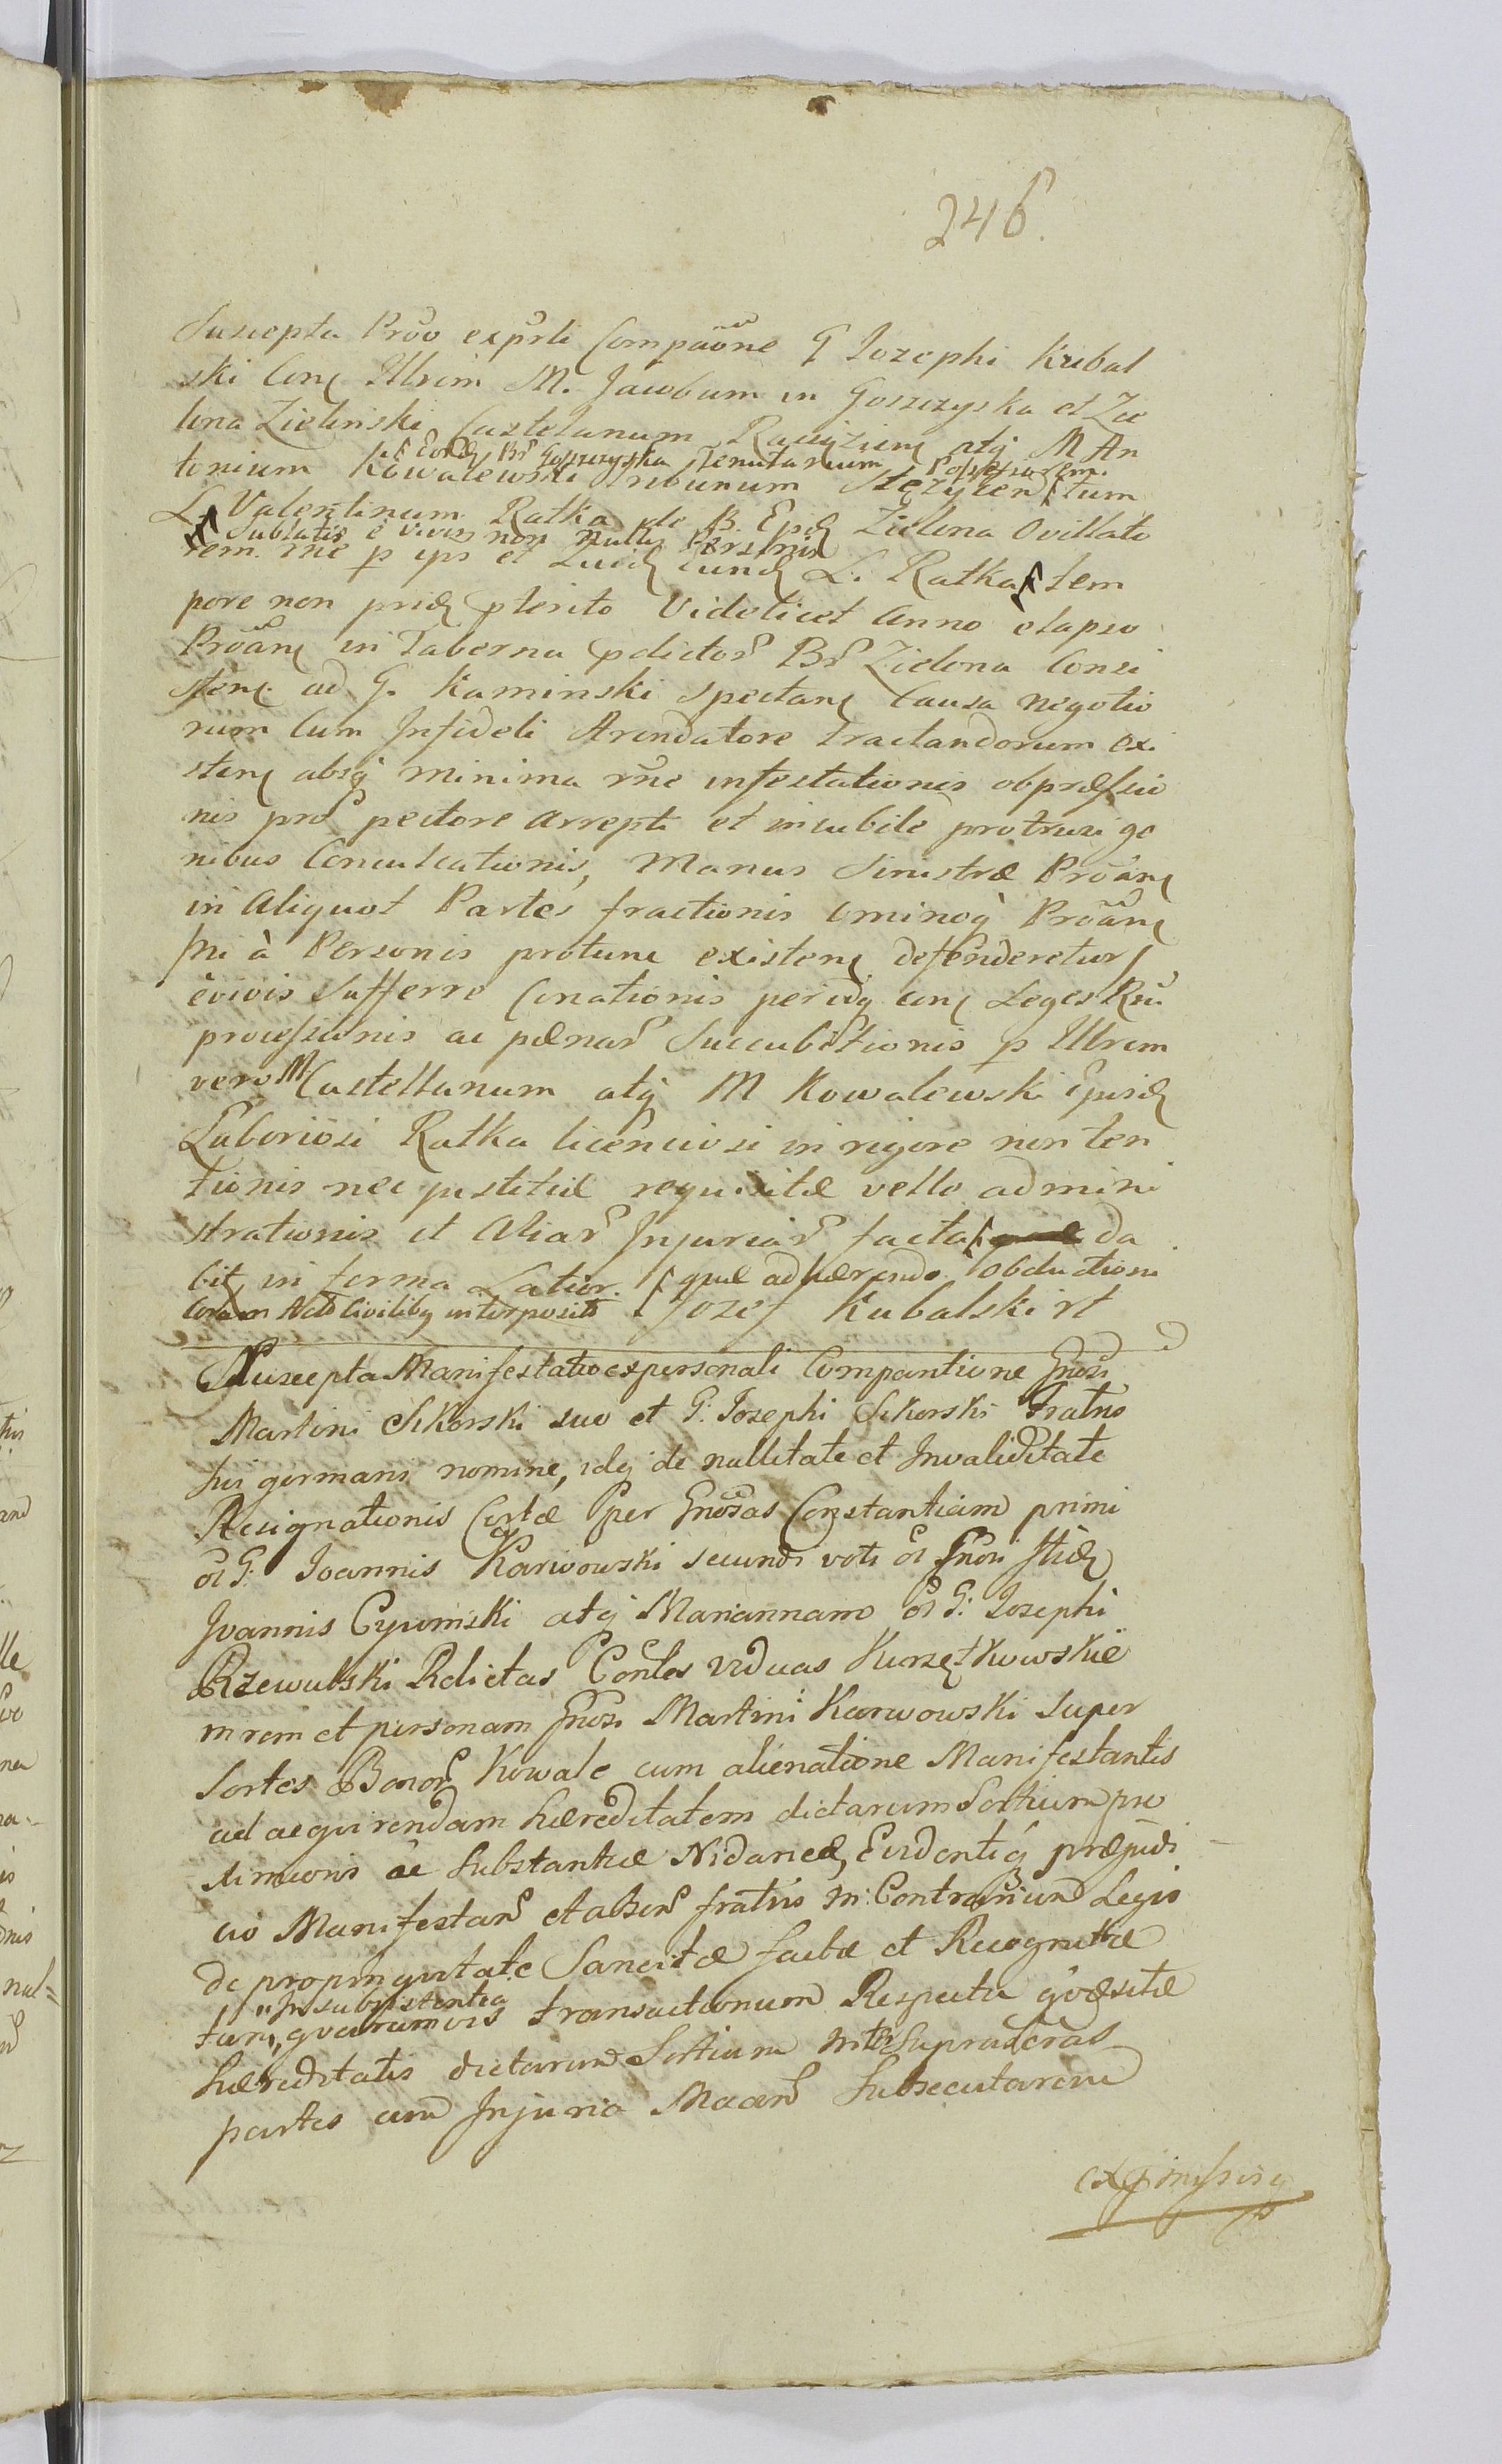 246.
Suscepta Prõõ exp̃rli Compaõne G Iozephi Kubal
ski Con: Illrem M. Jacobum in Goszczyska et Zie
lona Zielinski Castelanum Racięzien: atq́ M An
Eorũd Br̃ Goszczyska Tenutarium Possessorem
tonium Kowalewski Tribunum Stężycen tum
L. Valentinum Ratka de B. Epid Zielona Ovillato
Sublatis e vivis non nullis Personis
rem. rñe p ips et Luid cund L. Ratka tem
pore non prid p̱terito Videlicet Anno elapso
Prõan: in Taberna p̱dictor̃ Br̃ Zielona Consi
sten: ad G. Kaminski Spectan: Causa negotio
rum Cum Infideli Arendatore tractandorum exi
sten: absq́ minima rñe infestationis obpressio
nis pro pectore arrepti et in cubile protrusi ge
nibus Conculcationis, Manus Sinistræ Prõan:
in Aliquot Partes fractionis Cminoq́ Prõan:
Sni à Personis protunc existen: defenderetur
èvivis Sufferre Conationis periódq́ con: Leges Rni
processionis ac pænar̃ Succubitionis p Illrem
vero M Castellanum atq́ M Kowalewski Episd
Laboriosi Ratka licenciosi in rigore non ten
tionis nec justitiæ requisitæ vello admini
strationis et Aliar̃ Injuriar̃ facta da
bit in forma Latior. quæ adhærendo obductioni
Coram Actis Civilibq interposito Jozef Kubalski rt
Suscepta Manifestatio expersonali Comparitione Gnõsi
Martini Sikorski suo et G: Josephi Sikorski Fratris
sui germani nomine, idq́ de nullitate et Invaliditate
Resignationis Certæ per Gnõsas Constantiam primi
ol G: Joannis Karwowski secundi voti ol Gnõsi Stid
Joannis Cyprinski atq́ Mariannam ol G: Josephi
Rzewulski Relictas Contes viduas Kurzętkowskie
in rem et personam Gnõsi Martini Karwowski super
Sortes Bonor̃ Kowale cum alienatione Manifestantis
ad acqvirendam hæreditatem dictarum Sortium pro
ximioris ac Substantiæ Nidaneæ, Evidentiq́ præjudi
cio Manifestan̄ et absen̄ fratris in Contrarium Legis
de propinqvitate Sancitæ factæ et Recognitæ
"Insubsistentia
tum, qvarumvis transactionum Respectu qvæsitæ
hæreditatis dictarum Sortium inter Supradictas
partes cum Injuria Maan̄ Subsecutarum